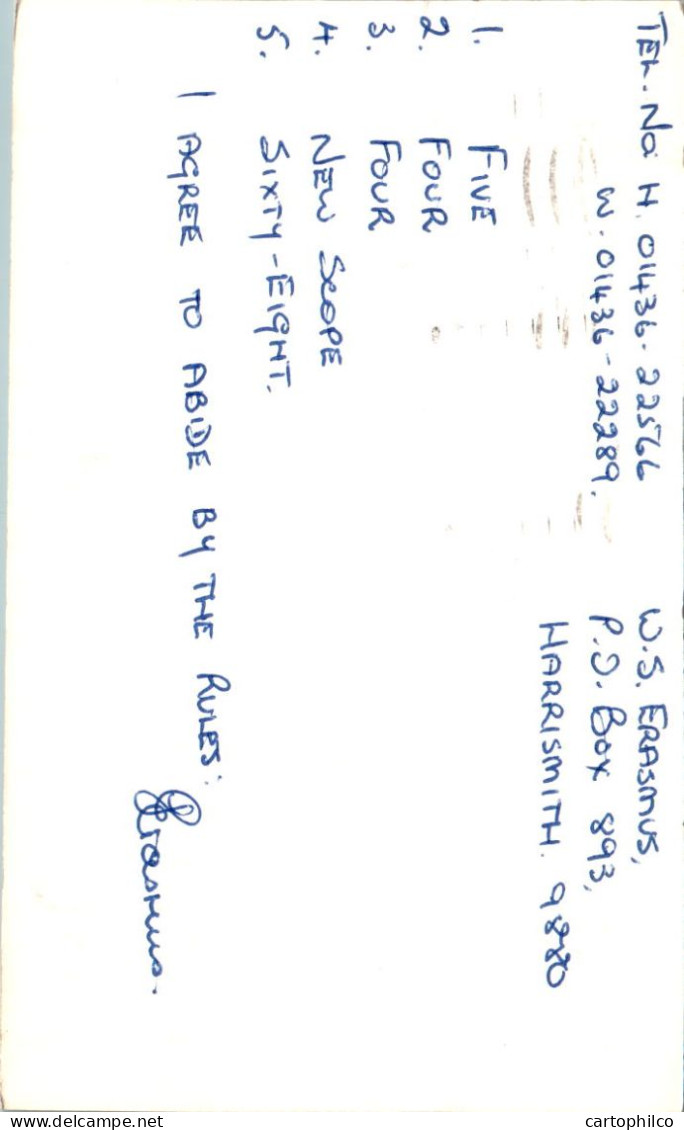 TEL. No H. 01436-22566
W. 01436-22289.
W.S. ERASMUS,
P.O. BOX 893,
HARRISMITH. 9880
1. FIVE
2. FOUR
3. FOUR
4. NEW SCOPE
5. SIXTY-EIGHT.
I AGREE TO ABIDE BY THE RULES:
Erasmus.
delcampe.net
cartophilco